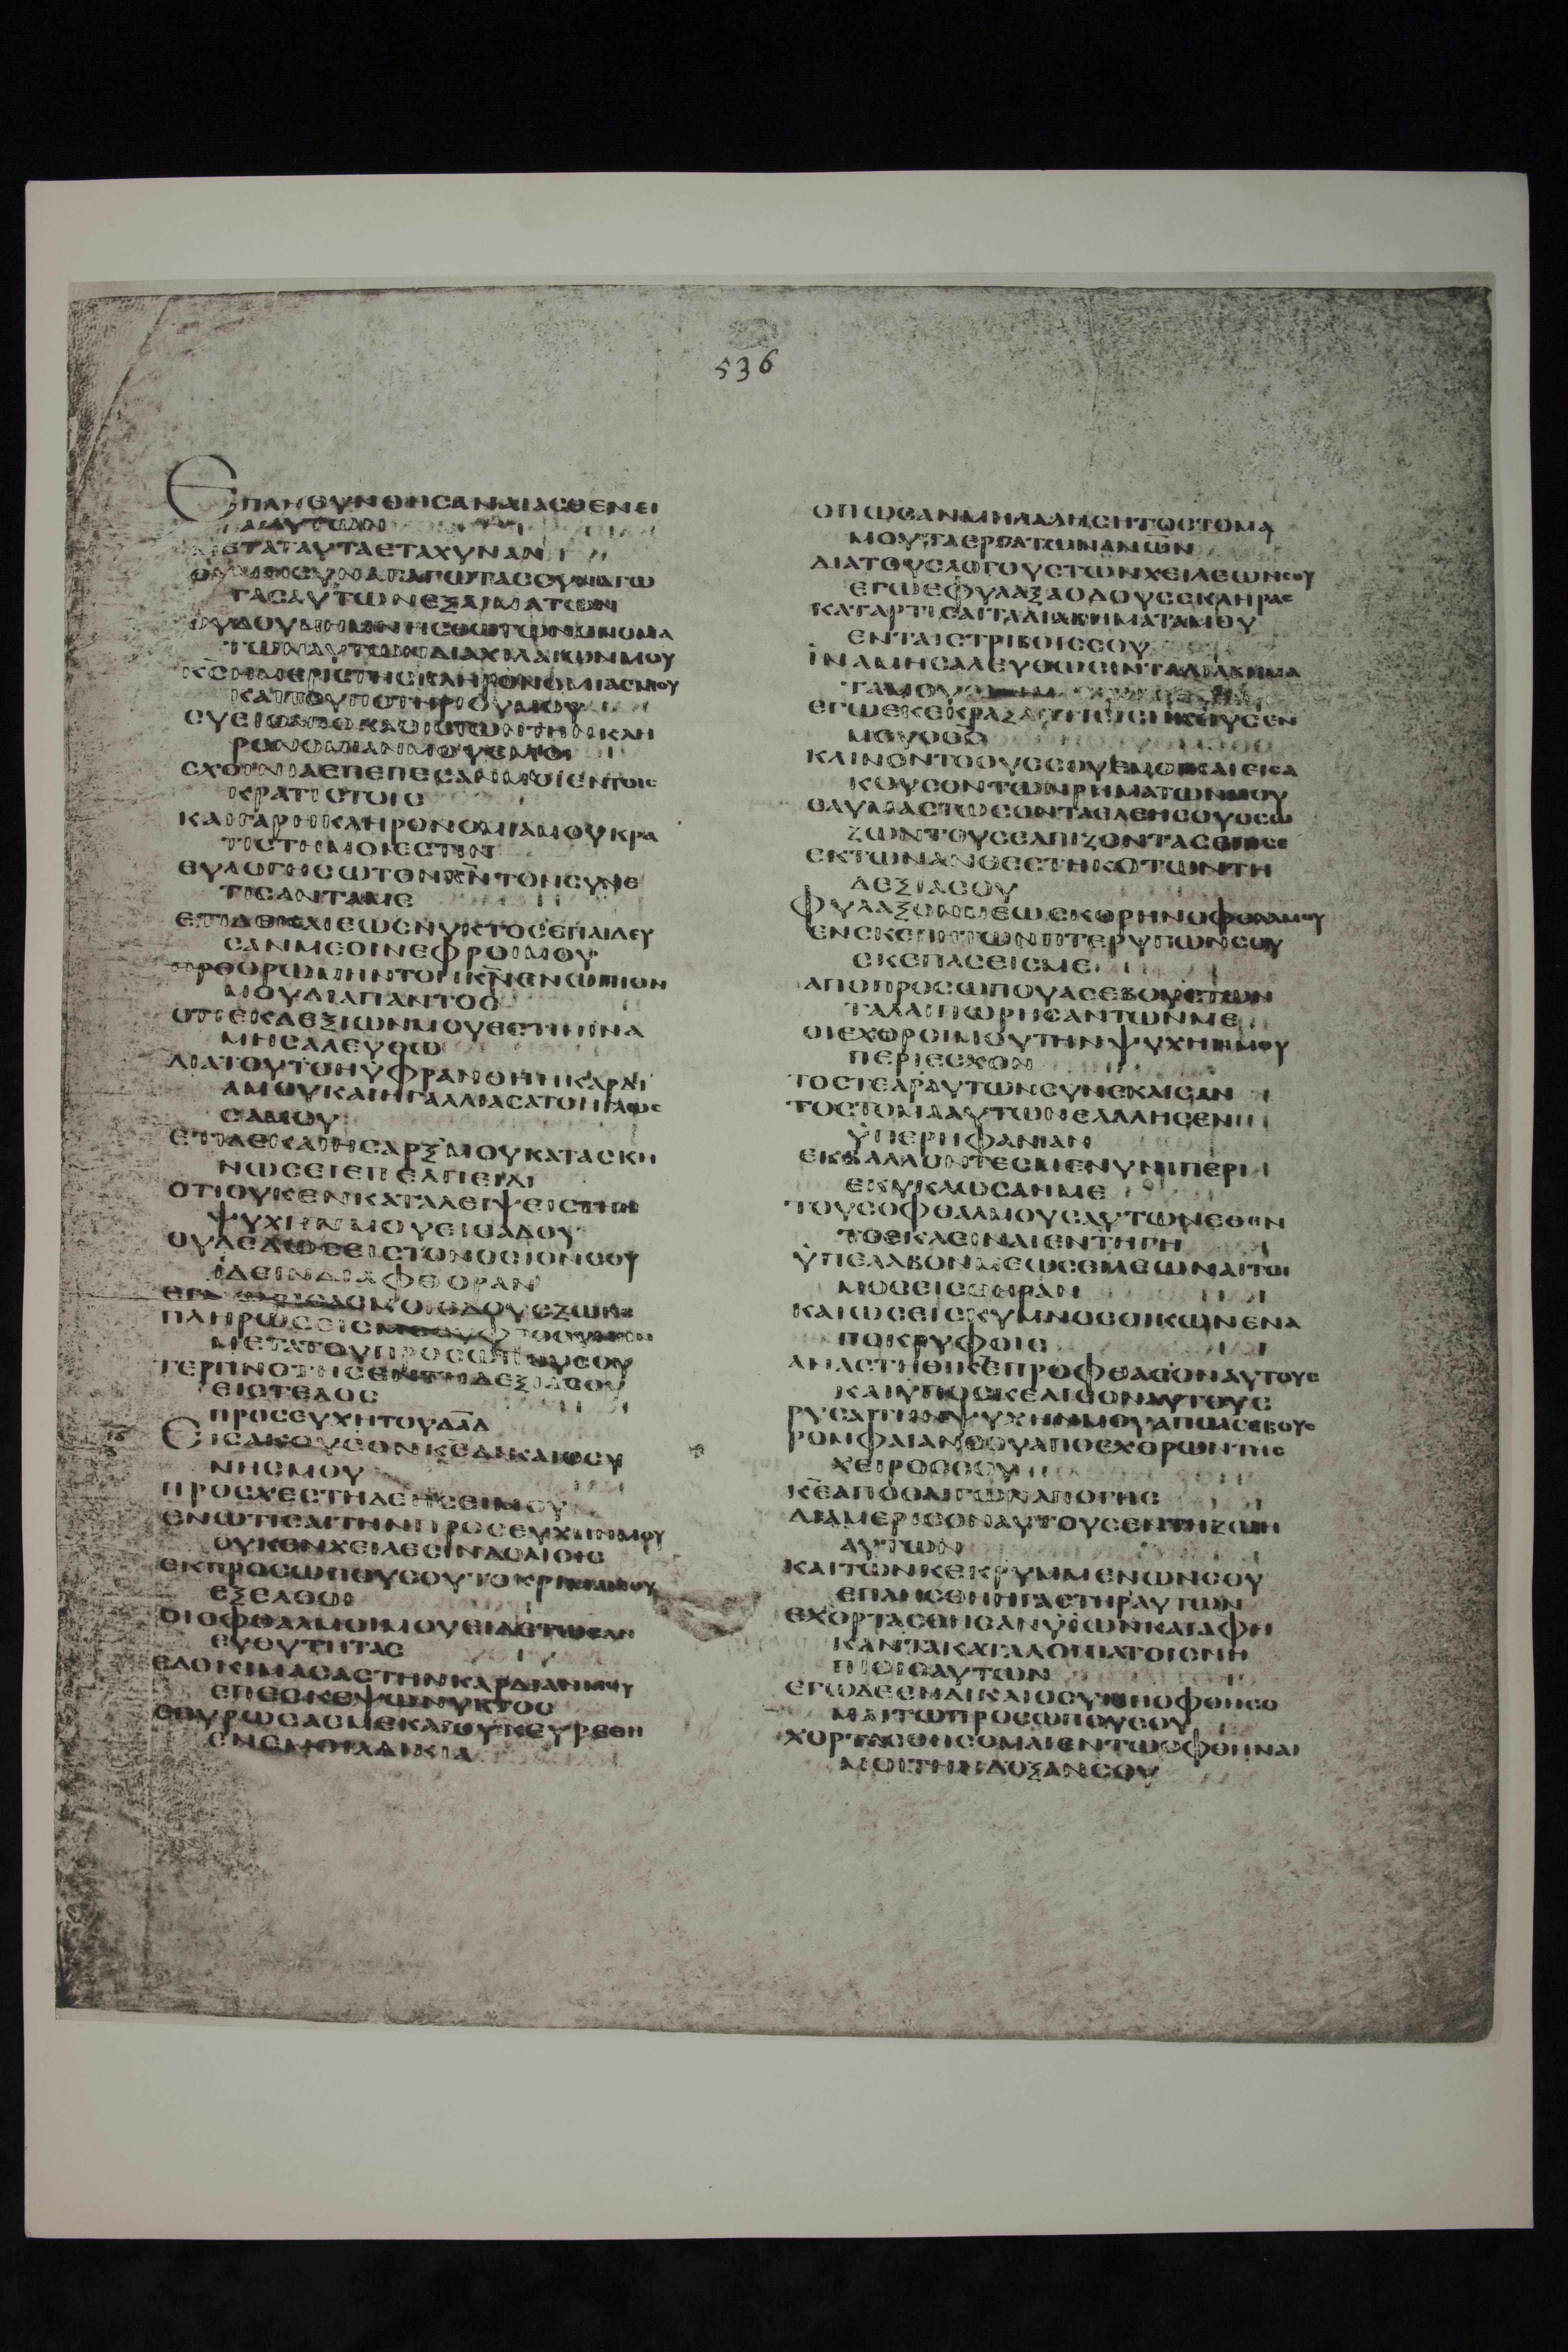 536
ΕΠΛΗΘΥΝΘΗCΑΝΑΙΑCΘΕΝΕΙ
ΑΙΑΥΤΩΝ
ΜΕΤΑΤΑΥΤΑΕΤΑΧΥΝΑΝ
ΟΥΜΗCΥΝΑΓΑΓΩΤΑCCΥΝΑΓΩ
ΓΑCΑΥΤΩΝΕΞΑΙΜΑΤΩΝ
ΟΥΔΟΥΜΗΜΝΗCΘΩΤΩΝΟΝΟΜΑ
ΤΩΝΑΥΤΩΝΔΙΑΧΙΛΑΙΩΝΜΟΥ
ΚCΗΜΕΡΙCΤΗCΚΛΗΡΟΝΟΜΙΑCΜΟΥ
ΚΑΙΤΟΥΠΟΤΗΡΙΟΥΜΟΥ
CΥΕΙΟΑΠΟΚΑΘΙCΤΩΝΤΗΝΚΛΗ
ΡΟΝΟΜΙΑΝΜΟΥΕΜΟΙ
CΧΟΙΝΙΑΕΠΕΠΕCΑΝΜΟΙΕΝΤΟΙC
ΚΡΑΤΙCΤΟΙC
ΚΑΙΓΑΡΗΚΛΗΡΟΝΟΜΙΑΜΟΥΚΡΑ
ΤΙCΤΗΜΟΙΕCΤΙΝ
ΕΥΛΟΓΗCΩΤΟΝΚΝΤΟΝCΥΝΕ
ΤΙCΑΝΤΑΜΕ
ΕΤΙΔΕΚΑΙΕΩCΝΥΚΤΟCΕΠΑΙΔΕΥ
CΑΝΜΕΟΙΝΕΦΡΟΙΜΟΥ
ΠΡΟΟΡΩΜΗΝΤΟΝΚΝΕΝΩΠΙΟΝ
ΜΟΥΔΙΑΠΑΝΤΟC
ΟΤΙΕΚΔΕΞΙΩΝΜΟΥΕCΤΙΝΙΝΑ
ΜΗCΑΛΕΥΘΩ
ΔΙΑΤΟΥΤΟΗΥΦΡΑΝΘΗΗΚΑΡΔΙ
ΑΜΟΥΚΑΙΗΓΑΛΛΙΑCΑΤΟΗΓΛΩC
CΑΜΟΥ
ΕΤΙΔΕΚΑΙΗCΑΡΞΜΟΥΚΑΤΑCΚΗ
ΝΩCΕΙΕΠΕΛΠΙΔΙ
ΟΤΙΟΥΚΕΝΚΑΤΑΛΕΙΨΕΙCΤΗΝ
ΨΥΧΗΝΜΟΥΕΙCΑΔΟΥ
ΟΥΔΕΔΩCΕΙCΤΟΝΟCΙΟΝCΟΥ
ΙΔΕΙΝΔΙΑΦΘΟΡΑΝ
ΕΓΝΩΡΙCΑCΜΟΙΟΔΟΥCΖΩΗC
ΠΛΗΡΩCΕΙCΜΕΕΥΦΡΟCΥΝΗC
ΜΕΤΑΤΟΥΠΡΟCΩΠΟΥCΟΥ
ΤΕΡΠΝΟΤΗCΕΝΤΗΔΕΞΙΑCΟΥ
ΕΙCΤΕΛΟC
ΠΡΟCΕΥΧΗΤΟΥΔΑΔ
ΕΙCΑΚΟΥCΟΝΚΕΔΙΚΑΙΟCΥ
ΝΗCΜΟΥ
ΠΡΟCΧΕCΤΗΔΕΗCΕΙΜΟΥ
ΕΝΩΤΙCΑΙΤΗΝΠΡΟCΕΥΧΗΝΜΟΥ
ΟΥΚΕΝΧΕΙΛΕCΙΝΔΟΛΙΟΙC
ΕΚΠΡΟCΩΠΟΥCΟΥΤΟΚΡΙΜΑΜΟΥ
ΕΞΕΛΘΟΙ
ΟΙΟΦΘΑΛΜΟΙΜΟΥΕΙΔΕΤΩCΑΝ
ΕΥΘΥΤΗΤΑC
ΕΔΟΚΙΜΑCΑCΤΗΝΚΑΡΔΙΑΝΜΟΥ
ΕΠΕCΚΕΨΩΝΥΚΤΟC
ΕΠΥΡΩCΑCΜΕΚΑΙΟΥΚΕΥΡΕΘΗ
ΕΝΕΜΟΙΑΔΙΚΙΑ
ΟΠΩCΑΝΜΗΛΑΛΗCΗΤΟCΤΟΜΑ
ΜΟΥΤΑΕΡΓΑΤΩΝΑΝΩΝ
ΔΙΑΤΟΥCΛΟΓΟΥCΤΩΝΧΕΙΛΕΩΝCΟΥ
ΕΓΩΕΦΥΛΑΞΑΟΔΟΥCCΚΛΗΡΑC
ΚΑΤΑΡΤΙCΑΙΤΑΔΙΑΒΗΜΑΤΑΜΟΥ
ΕΝΤΑΙCΤΡΙΒΟΙCCΟΥ
ΙΝΑΜΗCΑΛΕΥΘΩCΙΝΤΑΔΙΑΒΗΜΑ
ΤΑΜΟΥ
ΕΓΩΕΚΕΚΡΑΞΑΟΤΙΕΠΗΚΟΥCΕΝ
ΜΟΥΟΘC
ΚΛΙΝΟΝΤΟΟΥCCΟΥΕΜΟΙΚΑΙΕΙCΑ
ΚΟΥCΟΝΤΩΝΡΗΜΑΤΩΝΜΟΥ
ΘΑΥΜΑCΤΩCΟΝΤΑΕΛΕΗCΟΥΟCΩ
ΖΩΝΤΟΥCΕΛΠΙΖΟΝΤΑCΕΠΙCΕ
ΕΚΤΩΝΑΝΘΕCΤΗΚΟΤΩΝΤΗ
ΔΕΞΙΑCΟΥ
ΦΥΛΑΞΟΝΜΕΩCΚΟΡΗΝΟΦΘΑΛΜΟΥ
ΕΝCΚΕΠΗΤΩΝΠΤΕΡΥΓΩΝCΟΥ
CΚΕΠΑCΕΙCΜΕ
ΑΠΟΠΡΟCΩΠΟΥΑCΕΒΩΝΤΩΝ
ΤΑΛΑΙΠΩΡΗCΑΝΤΩΝΜΕ
ΟΙΕΧΘΡΟΙΜΟΥΤΗΝΨΥΧΗΝΜΟΥ
ΠΕΡΙΕCΧΟΝ
ΤΟCΤΕΑΡΑΥΤΩΝCΥΝΕΚΛΙCΑΝ
ΤΟCΤΟΜΑΑΥΤΩΝΕΛΑΛΗCΕΝ
ΥΠΕΡΗΦΑΝΙΑΝ
ΕΚΒΑΛΛΟΝΤΕCΜΕΝΥΝΙΠΕΡΙ
ΕΚΥΚΛΩCΑΝΜΕ
ΤΟΥCΟΦΘΑΛΜΟΥCΑΥΤΩΝΕΘΕΝ
ΤΟΕΚΛΕΙΝΑΙΕΝΤΗΓΗ
ΥΠΕΛΑΒΟΝΜΕΩCΕΙΛΕΩΝΑΙΤΟΙ
ΜΟCΕΙCΘΗΡΑΝ
ΚΑΙΩCΕΙCΚΥΜΝΟCΟΙΚΩΝΕΝΑ
ΠΟΚΡΥΦΟΙC
ΑΝΑCΤΗΘΙΚΕΠΡΟΦΘΑCΟΝΑΥΤΟΥC
ΚΑΙΥΠΟCΚΕΛΙCΟΝΑΥΤΟΥC
ΡΥCΑΙΤΗΝΨΥΧΗΝΜΟΥΑΠΟΑCΕΒΟΥC
ΡΟΜΦΑΙΑΝCΟΥΑΠΟΕΧΘΡΩΝΤΗC
ΧΕΙΡΟCCΟΥ
ΚΕΑΠΟΟΛΙΓΩΝΑΠΟΓΗC
ΔΙΑΜΕΡΙCΟΝΑΥΤΟΥCΕΝΤΗΖΩΗ
ΑΥΤΩΝ
ΚΑΙΤΩΝΚΕΚΡΥΜΜΕΝΩΝCΟΥ
ΕΠΛΗCΘΗΗΓΑCΤΗΡΑΥΤΩΝ
ΕΧΟΡΤΑCΘΗCΑΝΥΙΩΝΚΑΙΑΦΗ
ΚΑΝΤΑΚΑΤΑΛΟΙΠΑΤΟΙCΝΗ
ΠΙΟΙCΑΥΤΩΝ
ΕΓΩΔΕΕΝΔΙΚΑΙΟCΥΝΗΟΦΘΗCΟ
ΜΑΙΤΩΠΡΟCΩΠΟΥCΟΥ
ΧΟΡΤΑCΘΗCΟΜΑΙΕΝΤΩΟΦΘΗΝΑΙ
ΜΟΙΤΗΝΔΟΞΑΝCΟΥ